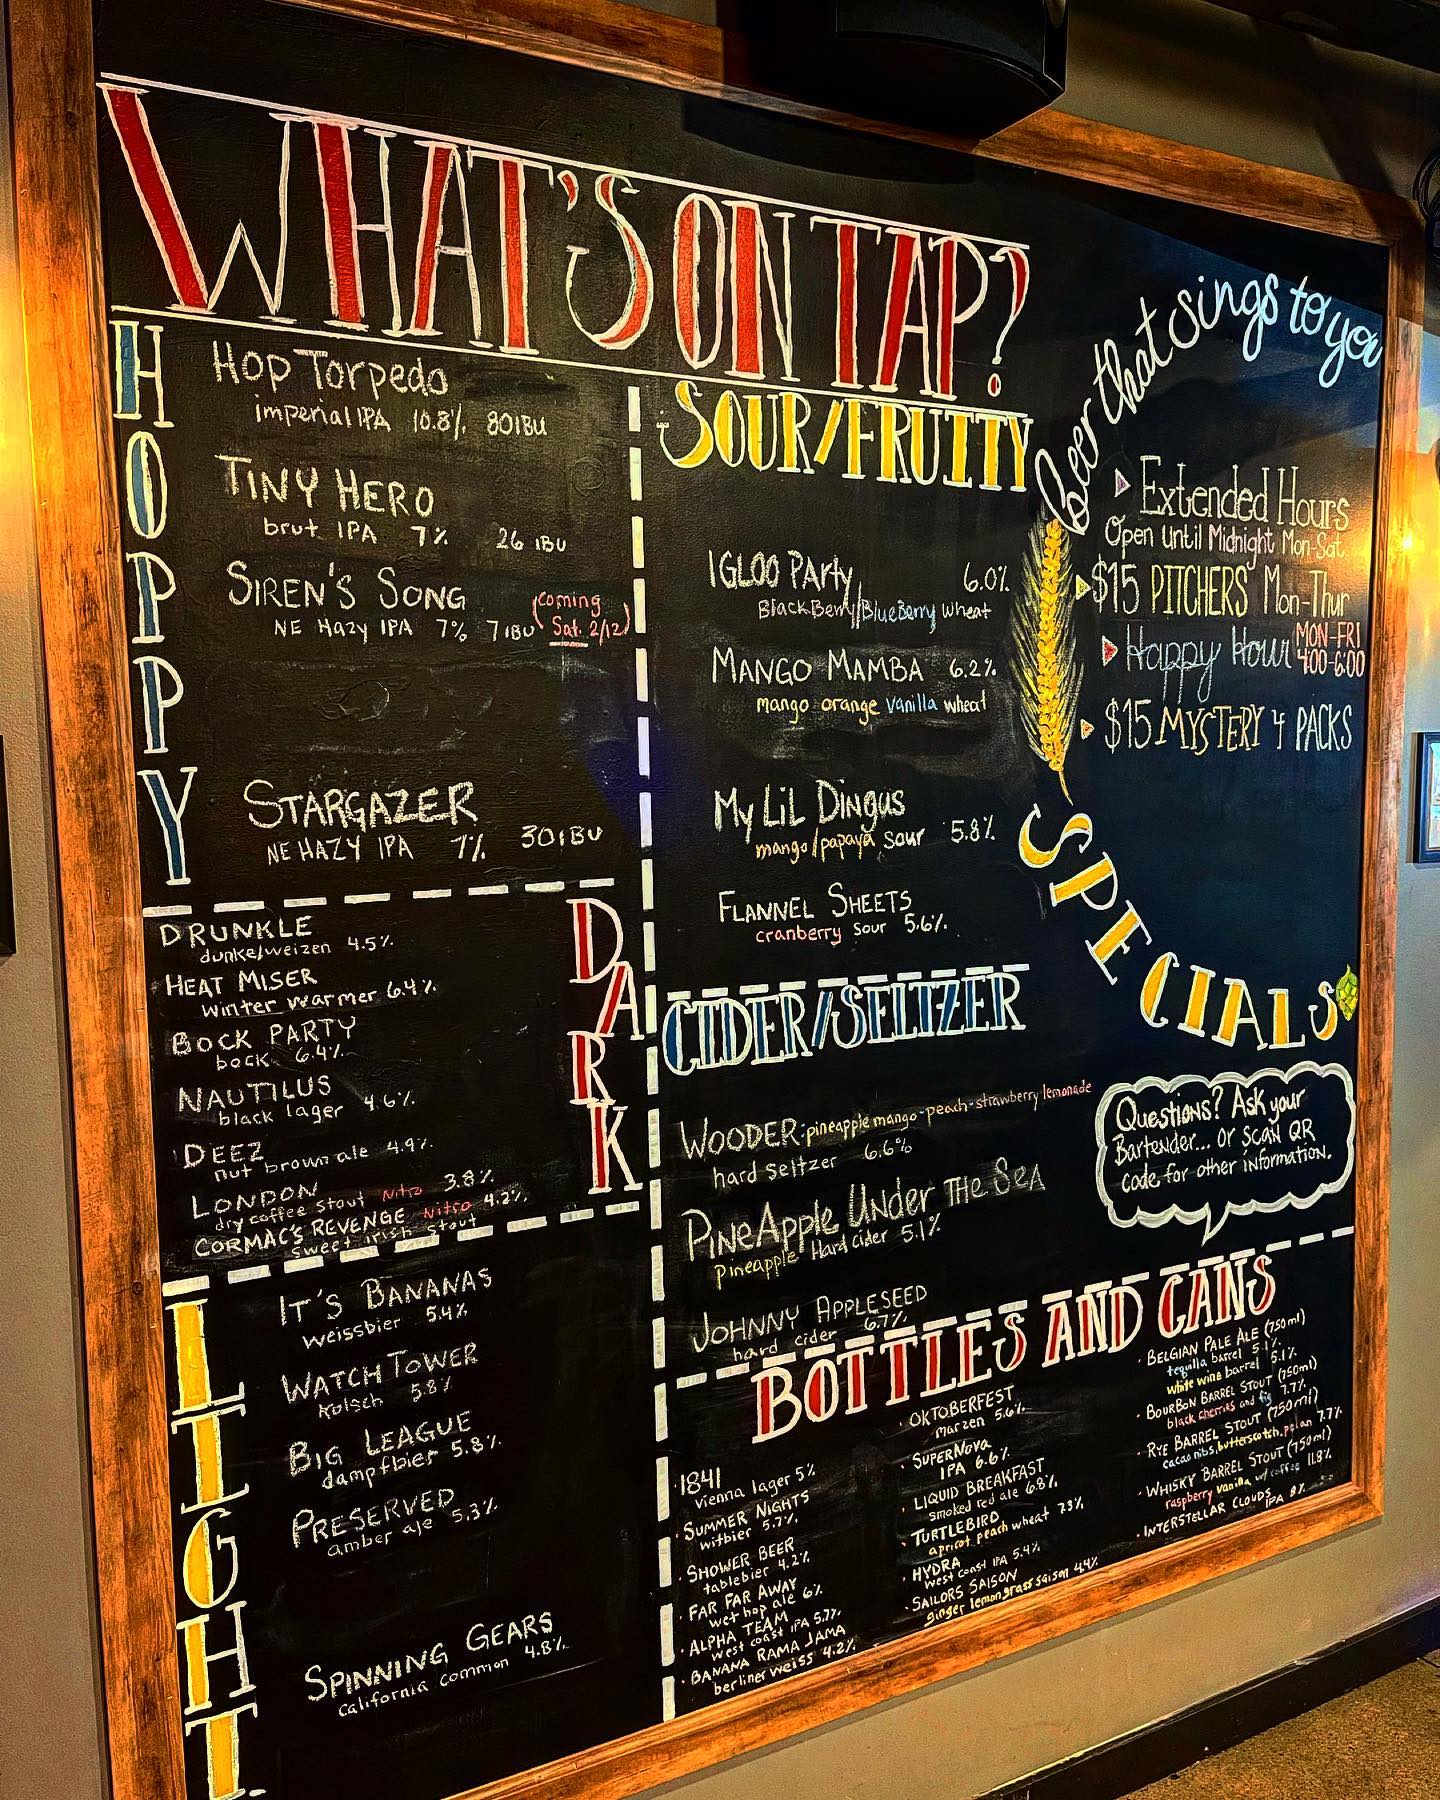 WHAT'S ON TAP?
HOPPY
Hop Torpedo
imperial IPA 10.8% 80IBU
TINY HERO
brut IPA 7% 26 IBU
SIREN'S SONG
NE Hazy IPA 7% 7IBU
(coming Sat. 2/12)
STARGAZER
NE HAZY IPA 7% 30IBU
DARK
DRUNKLE
dunkelweizen 4.5%
HEAT MISER
winter warmer 6.4%
BOCK PARTY
bock 6.4%
NAUTILUS
black lager 4.6%
DEEZ
nut brown ale 4.9%
LONDON
dry coffee stout Nitro 3.8%
CORMAC'S REVENGE Nitro 4.2%
Sweet irish Stout
LIGHT
IT'S BANANAS
weissbier 5.4%
WATCH TOWER
Kolsch 5.8%
BIG LEAGUE
dampfbier 5.8%
PRESERVED
amber ale 5.3%
SPINNING GEARS
california common 4.8%
SOUR/FRUITY
IGLOO PARty 6.0%
BlackBerry/BlueBerry wheat
MANGO MAMBA 6.2%
mango orange vanilla wheat
My LiL Dingus
mango/papaya sour 5.8%
FLANNEL SHEETS
cranberry sour 5.6%
CIDER/SELTZER
WOODER: pineapple mango-peach-strawberry lemonade
hard seltzer 6.6%
PineApple Under THE SeA
Pineapple Hard cider 5.1%
JOHNNY APPLESEED
hard cider 6.7%
Beer that sings to you
Extended Hours
Open Until Midnight Mon-Sat.
$15 PITCHERS Mon-Thur
Happy Hour MON-FRI
4:00-6:00
$15 MYSTERY 4 PACKS
SPECIALS
Questions? Ask your
Bartender... or scan QR
code for other information.
BOTTLES AND CANS
1841
Vienna lager 5%
· SUMMER NIGHTS
witbier 5.7%
· SHOWER BEER
tablebier 4.2%
· FAR FAR AWAY
wet hop ale 6%
· ALPHA TEAM
west coast IPA 5.7%
· BANANA RAMA JAMA
berliner weiss 4.2%
· OKTOBERFEST
marzen 5.6%
· SUPERNOVA
IPA 6.6%
· LIQUID BREAKFAST
smoked red ale 6.8%
· TURTLEBIRD
apricot peach wheat 7.3%
· HYDRA
west coast IPA 5.4%
· SAILORS SAISON
ginger lemongrass saison 4.4%
· BELGIAN PALE ALE (750ml)
tequila barrel 5.1%
white wine barrel 5.1%
· BOURBON BARREL STOUT (750ml)
black cherries and fig 7.7%
· RYE BARREL STOUT (750ml)
cacao nibs, butterscotch, 7.7%
· WHISKY BARREL STOUT (750ml)
raspberry vanilla w/ coffee 11.8%
· INTERSTELLAR CLOUDS
IPA 8%